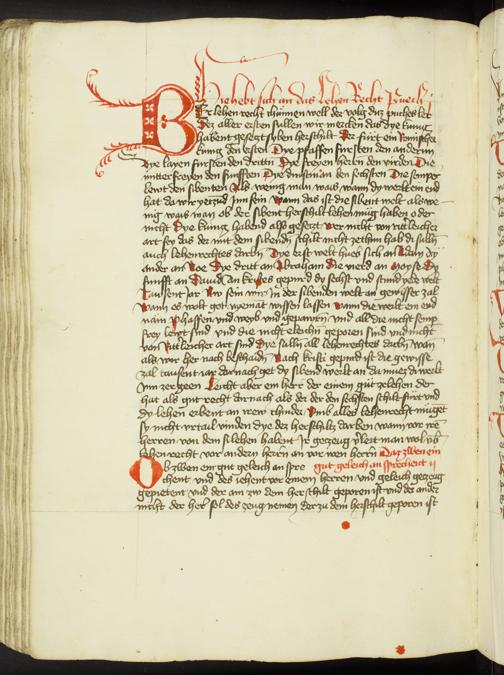 Hie hebt sich an das Lehen Recht Puech
Er lehen recht chunnen well der volg diz puches ler
Der aller ersten sullen wir mercken das dye kunig
habent gesetzt syben herschilt Der fürt ein Römischer
kunig den ersten Dye pfaffen fürsten den anderen
Dye layen fürsten den dritten Dye freyen herren den vierden Die
mitterfreyen den funfften Dye dinstman den sechsten Die semper
lewt den sibenten Als wenig man wais wann dy welt ein end
hat da wir yetzund Inn sein wann das ist die sibent welt als we
nig wais man ob der sibent herschilt lehen müg haben oder
nicht Dye kunig habend also gesetzt wer nicht von ritterleicher
art sey das der mit dem sibenden schilt nicht ze thun hab di sulln
auch lehenrechtes darben Dye erst welt hueb sich an Adam dy
ander an Noe Dye drit an Abraham Die vierd an Moyse Dy
funfft an Dauid An Cristes gepurd dy sechst und stund yede welt
Tausent Jar Nw sein wir in der sibenden welt an gewisse zal
Wann es wolt got nyemant wissen lassen wann die welt ein end
näm Phaffen und weyb und gepawrn und all die nicht semp
frey lewt sind und die nicht eleichen geporen sind und nicht
von Ritterleicher art sind Dye sulln all lehenrechtes darben wan
als wir her nach beschaiden Nach kristi gepurd ist die gewisse
zal tausent iar darnach get dy sibend welt an da muez der welt
Inn zergeen Leicht aber ein herr der einem gut ze lehen der
hat als gut recht dar nach als der der den sechsten schilt fürt und
dy lehen erbent an irew chinder Umb alles lehenrecht müget
sy nicht urtail vinden dye dez herschiltz darben wann vor irn
herren von dem si lehen habent Ir gezeug verleit man wol umb
lehen recht vor andern herrn an vor irem herrn Daz zwen ein
Ob zwen ein gut geleich an spre gut geleich ansprechent ij
chent und des iehent vor einem herren und geleich gezeug
gepietent und der ain zw dem herschilt geporen ist und der ander
nicht der her sol des zeug nemen der zu dem herschilt geporen ist